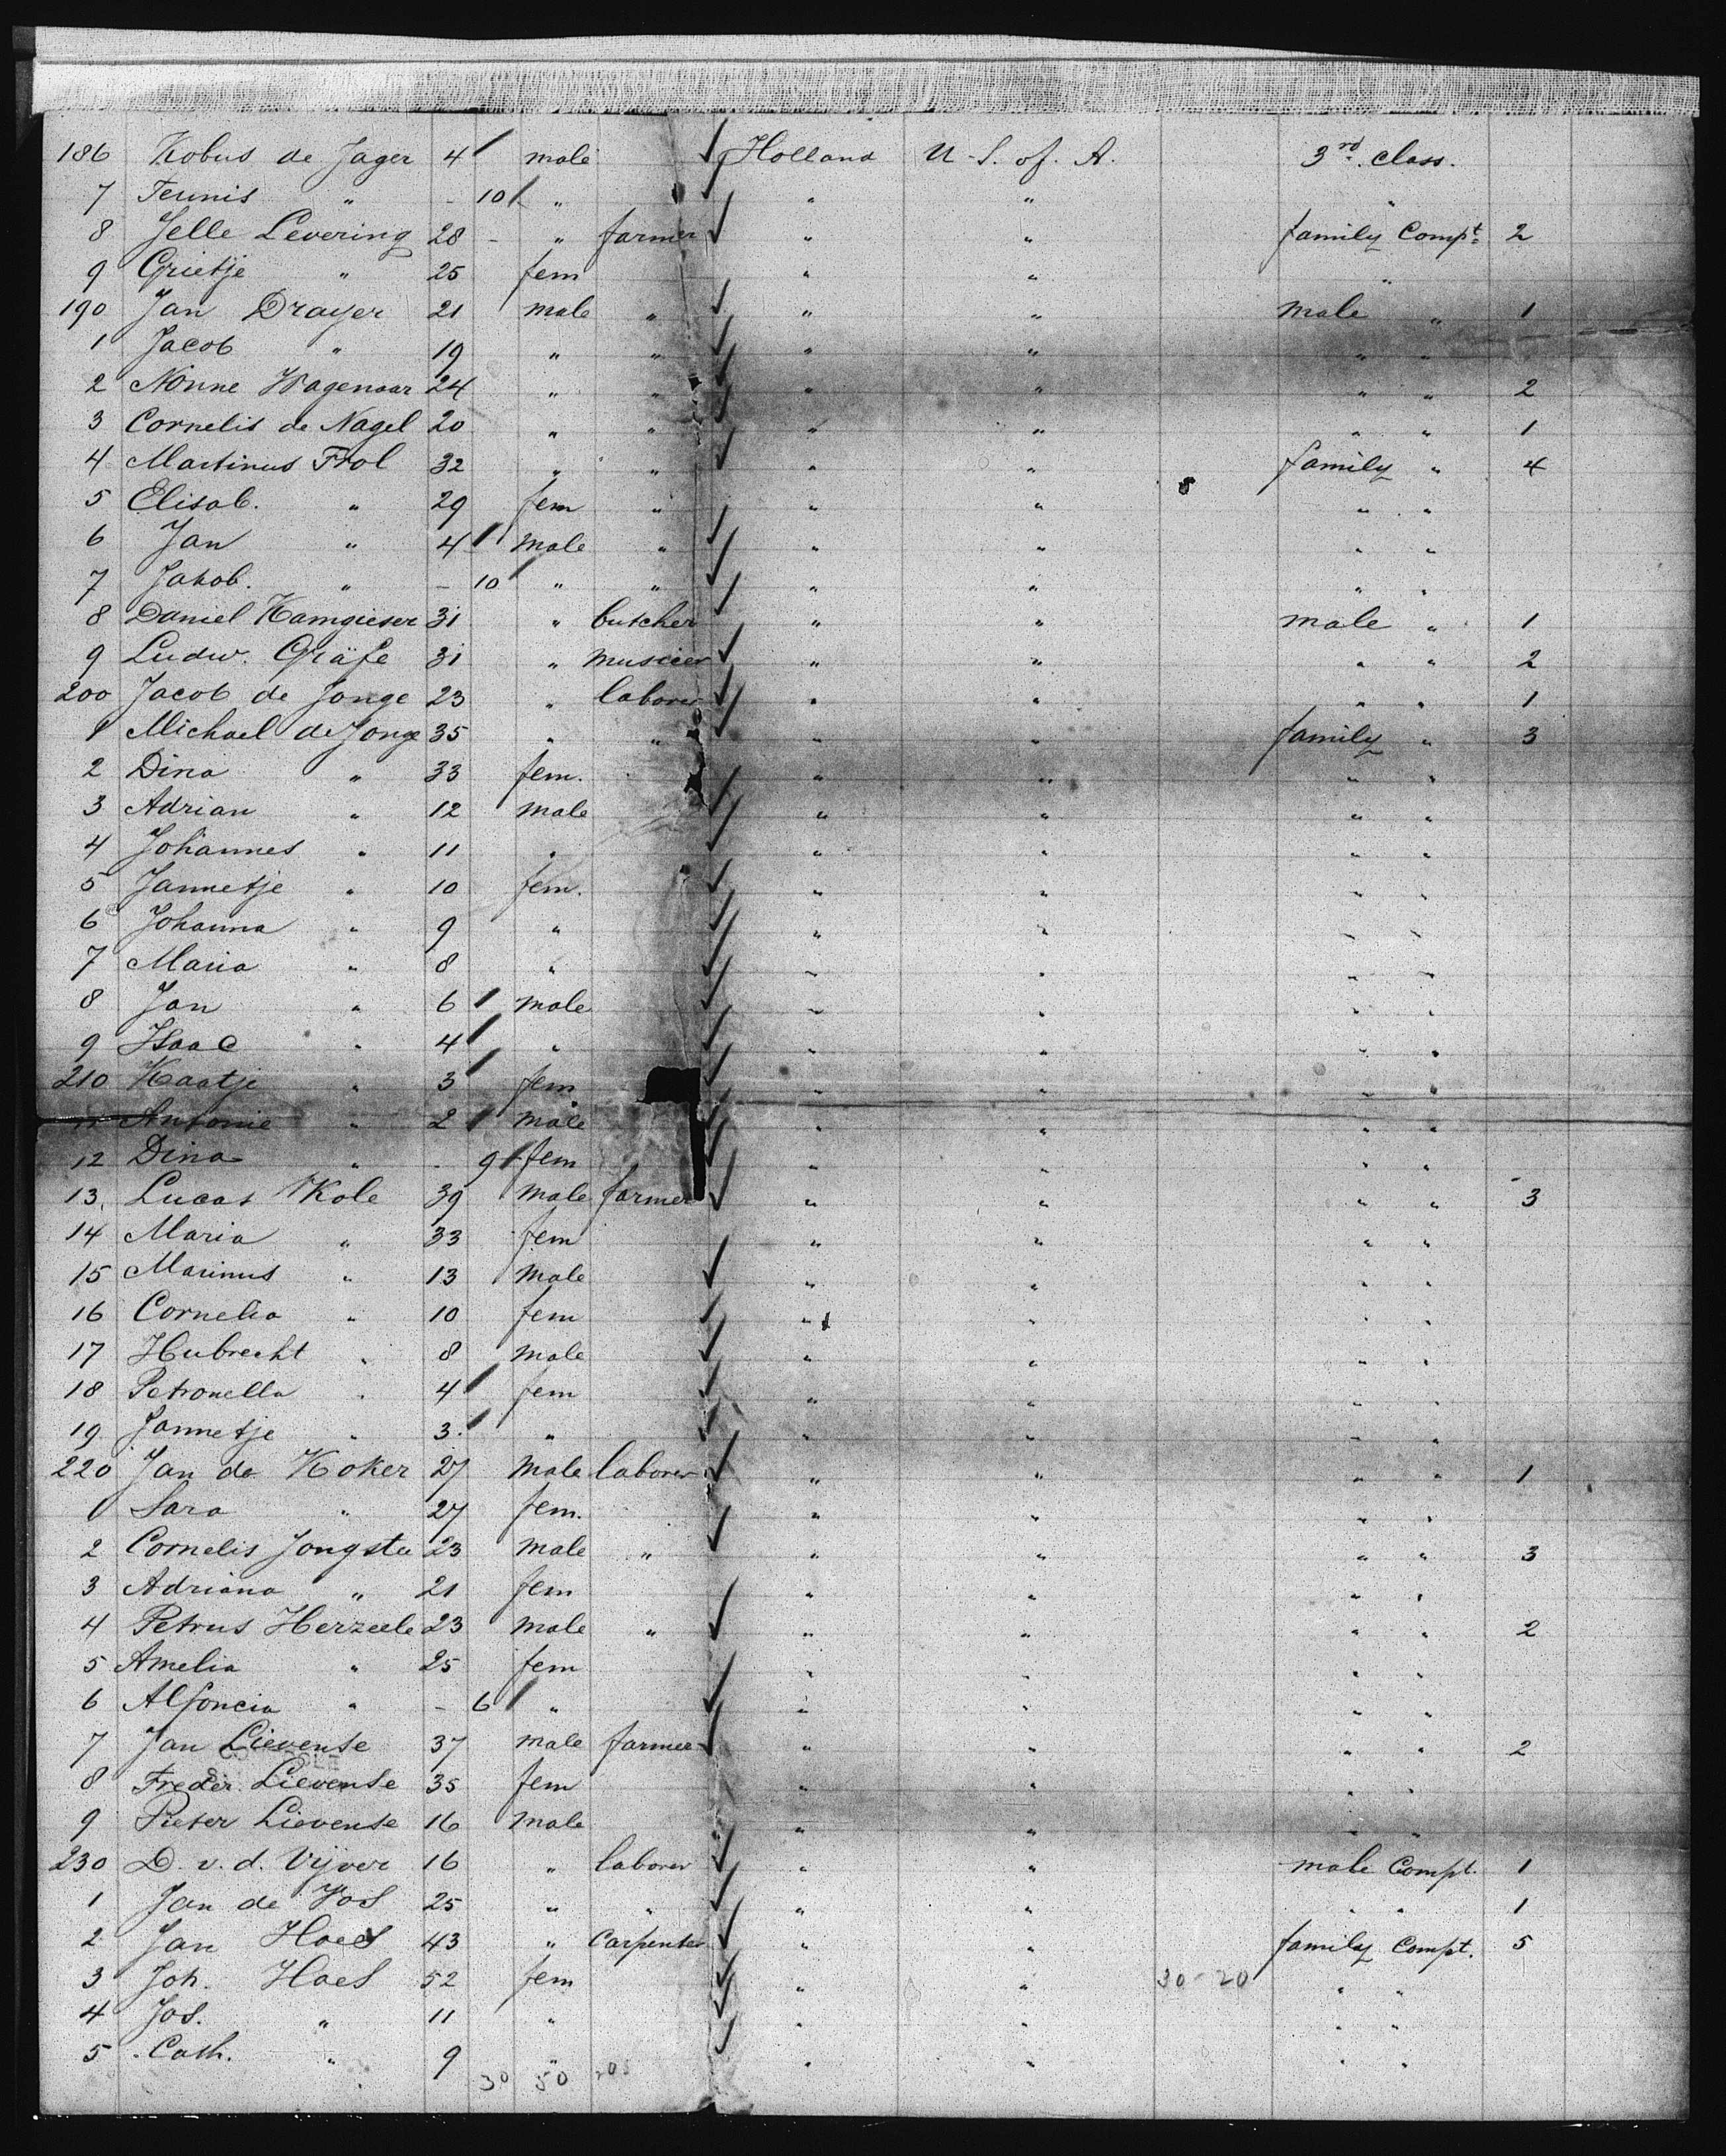 186 Kobus de Jager 4 male Holland U.S. of. A. 3rd. class.
7 Teunis " - 10 " " " "
8 Jelle Levering 28 - " farmer " " family Compt. 2
9 Grietje " 25 fem " " "
190 Jan Drayer 21 male " " " male " 1
1 Jacob " 19 " " " " " "
2 Nonne Wagenaar 24 " " " " " " 2
3 Cornelis de Nagel 20 " " " " " " 1
4 Martinus Frol 32 " " " " family " 4
5 Elisab. " 29 fem " " " " "
6 Jan " 4 male " " " " "
7 Jakob. " - 10 " " " " " "
8 Daniel Kamgieser 31 " butcher " " male " 1
9 Ludw. Gräfe 31 " musicer " " " " 2
200 Jacob de Jonge 23 " laborer " " " " 1
1 Michael de Jonge 35 " " " " family " 3
2 Dina " 33 fem. " " " "
3 Adrian " 12 male " " " "
4 Johannes " 11 " " " " "
5 Jannetje " 10 fem. " " " "
6 Johanna " 9 " " " " "
7 Maria " 8 " " " " "
8 Jan " 6 male " " " "
9 Isaac " 4 " " " " "
210 Kaatje " 3 fem " " " "
11 Antonie " 2 male " " " "
12 Dina " - 9 fem " " " "
13. Lucas Kole 39 male farmer " " " " 3
14 Maria " 33 fem " " " "
15 Marinus " 13 male " " " "
16 Cornelia " 10 fem " " " "
17 Hubrecht " 8 male " " " "
18 Petronella " 4 fem " " " "
19 Jannetje " 3. " " " " "
220 Jan de Koker 27 male laborer " " " " 1
1 Sara " 27 fem. " " " "
2 Cornelis Jongste 23 male " " " " " 3
3 Adriana " 21 fem " " " "
4 Petrus Herzeele 23 male " " " " " 2
5 Amelia " 25 fem " " " "
6 Alfoncia " - 6 " " " " "
7 Jan Lievense 37 male farmer " " " " 2
8 Freder. Lievense 35 fem " " " "
9 Pieter Lievense 16 male " " " "
230 D. v. d. Vijver 16 " laborer " " male Compt. 1
1 Jan de Vos 25 " " " " " " 1
2 Jan Haes 43 " Carpenter " " family Compt. 5
3 Joh. Haes 52 fem " " 30-20 " "
4 Jos. " 11 " " " " "
5 Cath. " 9 " " " " "
30 50